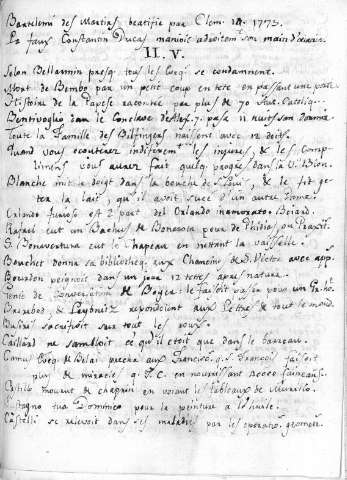 Bartelemi des Martirs beatifié par Clem. 14. 1773.
Le faux Constantin Ducas manioit adroitem. son main d'airain.
II. V.
Selon Bellarmin presq. tous les Evêqs se condamnent.
Mort de Bembo par un petit coup en tete en passant une porte
Histoire de la Papesse racontée par plus de 70 Aut. Catoliq.
Bentivoglio dans le Conclave d' passa 11 nuits son Dormir
Toute la Famille des Bilfingers naissent avec 12 doits.
Quand vous ecouterez indiferem.t les injures, & les Comp-
limens vous aurez fait quelq. progrès dans la
Blanche mit le doigt dans la bouche de S. Louis, & le fit je-
ter le lait, qu'il avoit succé d'un autre femme.
Orlando furioso est 2 part. del Orlando inamorato. Boiard.
Rafael eut un Bachus de Donatelo pour de Phidias ou Praxit.
S. Bonaventura eut le Chapeau en netoiant la vaisselle.
Bouchet donna sa biblioteq. aux Chanoins de S. Victor avec app.
Bourdon peignoit dans un jour 12 tetes apres nature.
de Conversation de Boyer le faisoit passer pour un
& Leybnitz repondoient aux Letres de tout le mond.
Busiris sacrifioit sur tout les roux.
Caillard ne sembloit ce qu'il etoit que dans le barreau.
Camus Evêq. de Belai precha aux Francisc. q. S. François faisoit
plus de miracles q. J. C. en nourrissant 40000 faineans.
Castillo mourut de chagrin en voiant les tableaux de Murillo.
Castagno tua Dominico pour la peinture a l'huile.
Castelli se relevoit dans ses maladies par les operatio. geometr.